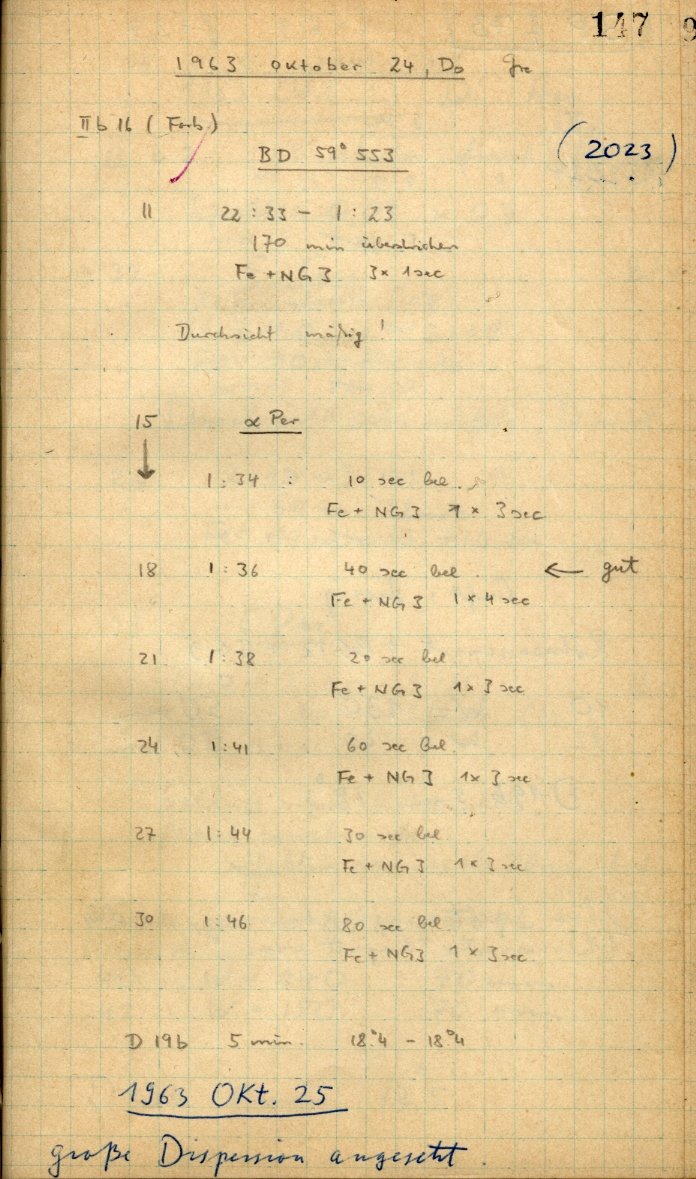 147 9
1963 Oktober 24, Do Gre
II b 16 (Farb)
BD 59° 553 (2023)
11 22:33 - 1:23
170 min überstrichen
Fe + NG3 3 x 1 sec
Durchsicht mäßig!
15 α Per
↓ 1:34 : 10 sec bel.
Fe + NG3 1 x 3 sec
18 1:36 40 sec bel. ← gut
Fe + NG3 1 x 4 sec
21 1:38 20 sec bel
Fe + NG3 1 x 3 sec
24 1:41 60 sec bel.
Fe + NG3 1 x 3 sec
27 1:44 30 sec bel
Fe + NG3 1 x 3 sec
30 1:46 80 sec bel.
Fe + NG3 1 x 3 sec.
D 19b 5 min. 18°.4 - 18°.4
1963 OKt. 25
große Dispersion angesetzt.